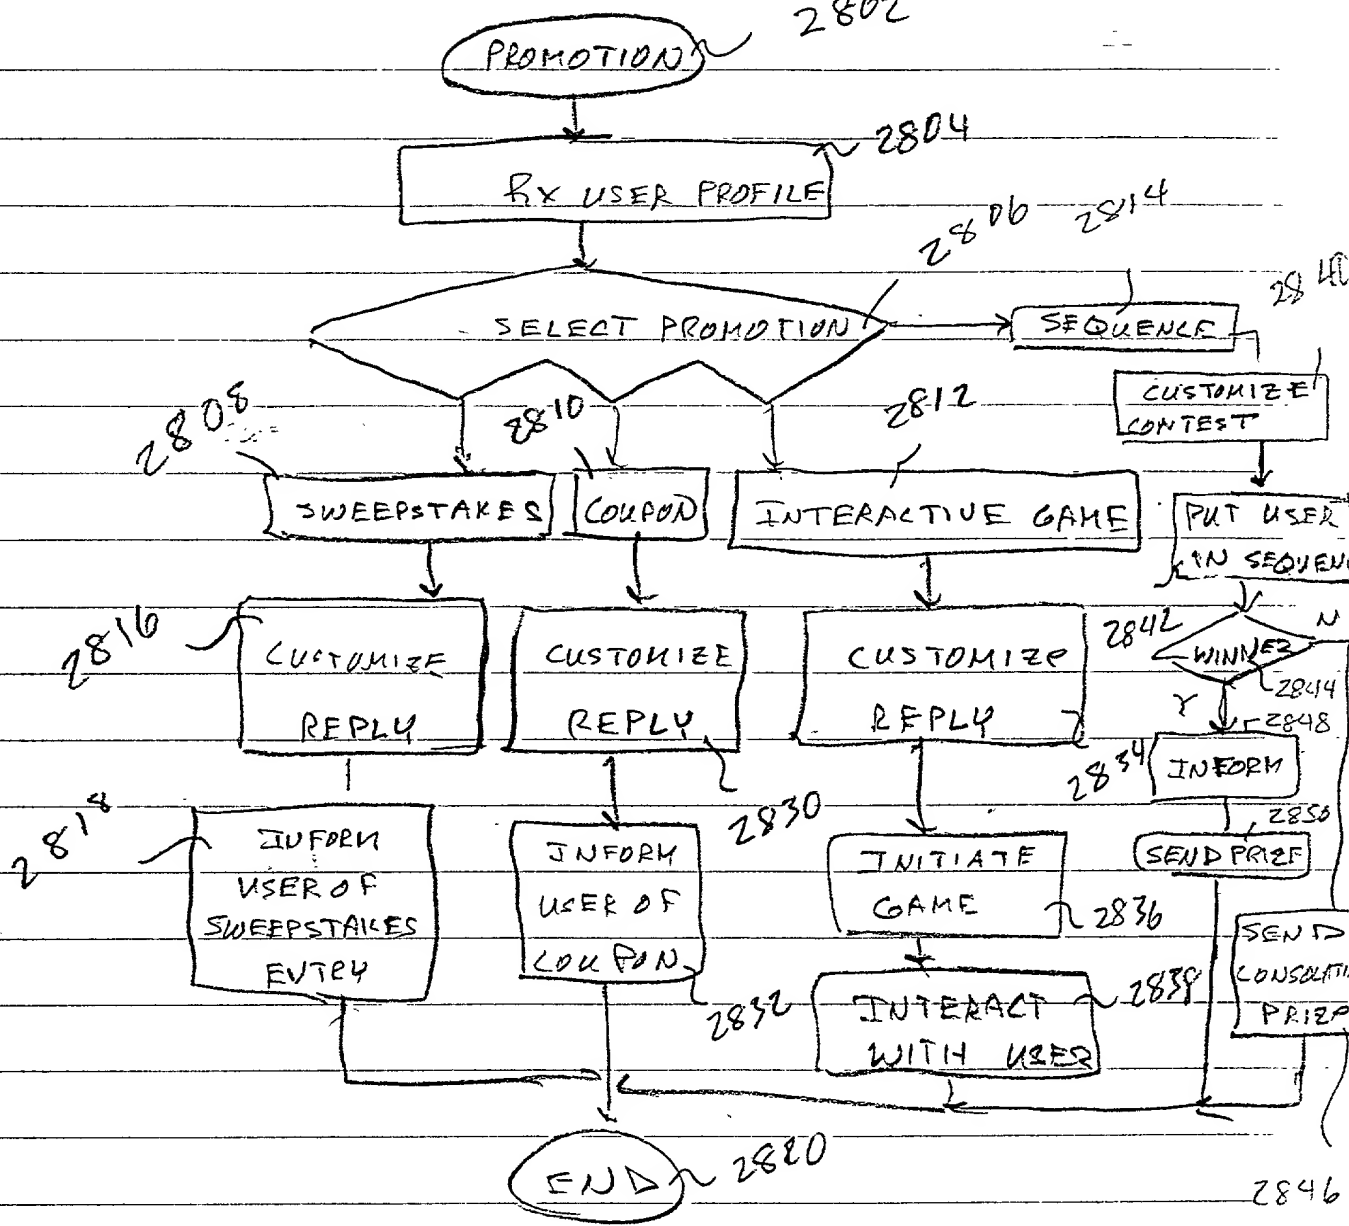 2802
PROMOTION
2804
Rx USER PROFILE
2806
2814
SELECT PROMOTION
SEQUENCE
2840
CUSTOMIZE
CONTEST
2808
2810
2812
SWEEPSTAKES
COUPON
INTERACTIVE GAME
PUT USER
IN SEQUEN
2816
CUSTOMIZE
REPLY
CUSTOMIZE
REPLY
2830
CUSTOMIZE
REPLY
2834
2842
N
WINNER
2844
Y
2848
INFORM
2850
SEND PRIZE
2818
INFORM
USER OF
SWEEPSTAKES
ENTRY
INFORM
USER OF
COUPON
2832
INITIATE
GAME
2836
INTERACT
WITH USER
2838
SEND
CONSOLATI
PRIZE
END
2820
2846